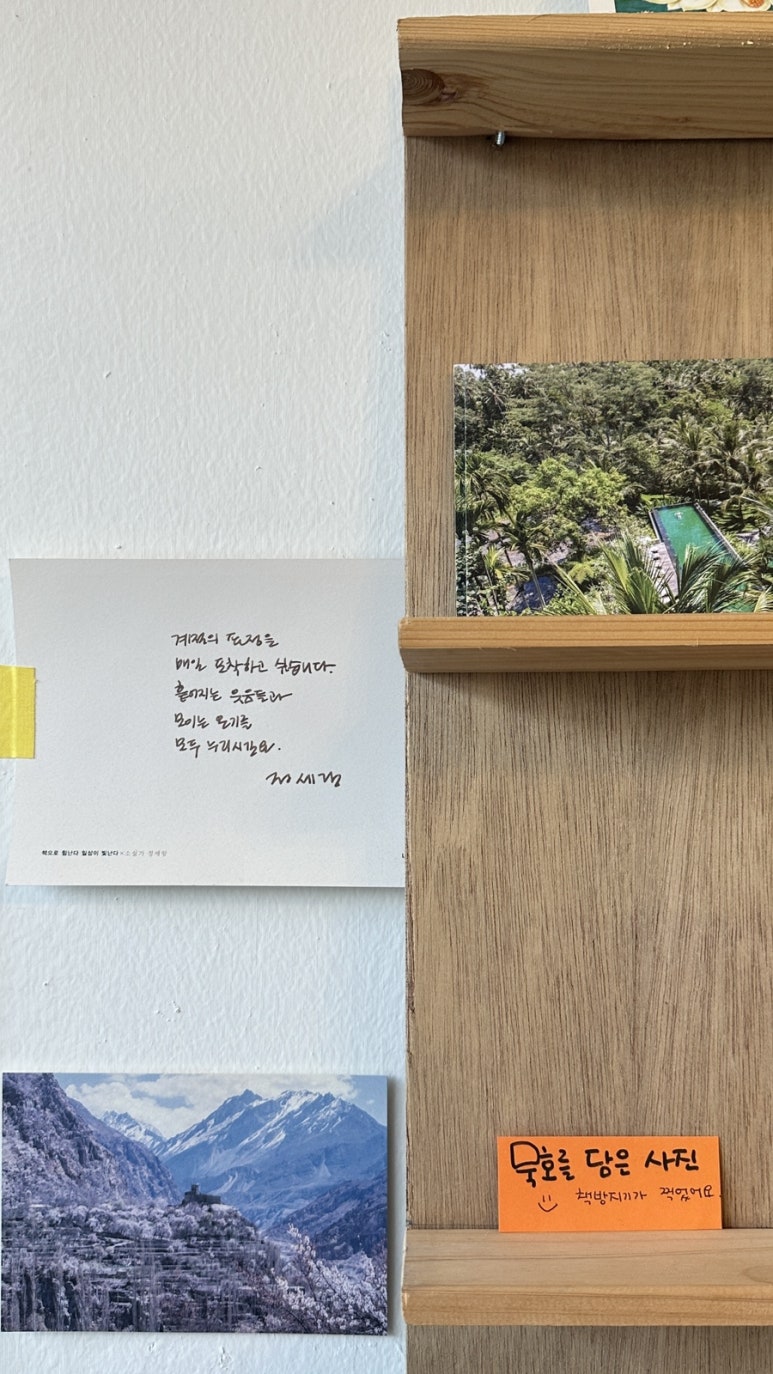 계절의 표정을
매일 포착하고 싶습니다.
흩어지는 웃음들과
모이는 온기를
모두 누리시길요.
정세랑
책으로 힘난다 일상이 빛난다×소설가 정세랑
묵호를 담은 사진
책방지기가 찍었어요.